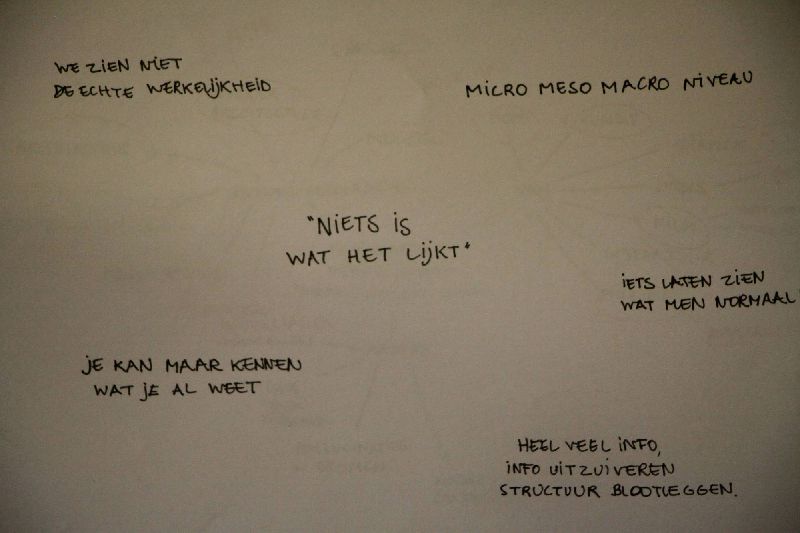 WE ZIEN NIET
DE ECHTE WERKELIJKHEID
MICRO MESO MACRO NIVEAU
"NIETS IS
WAT HET LIJKT"
IETS LATEN ZIEN
WAT MEN NORMAAL
JE KAN MAAR KENNEN
WAT JE AL WEET
HEEL VEEL INFO,
INFO UITZUIVEREN
STRUCTUUR BLOOTLEGGEN.